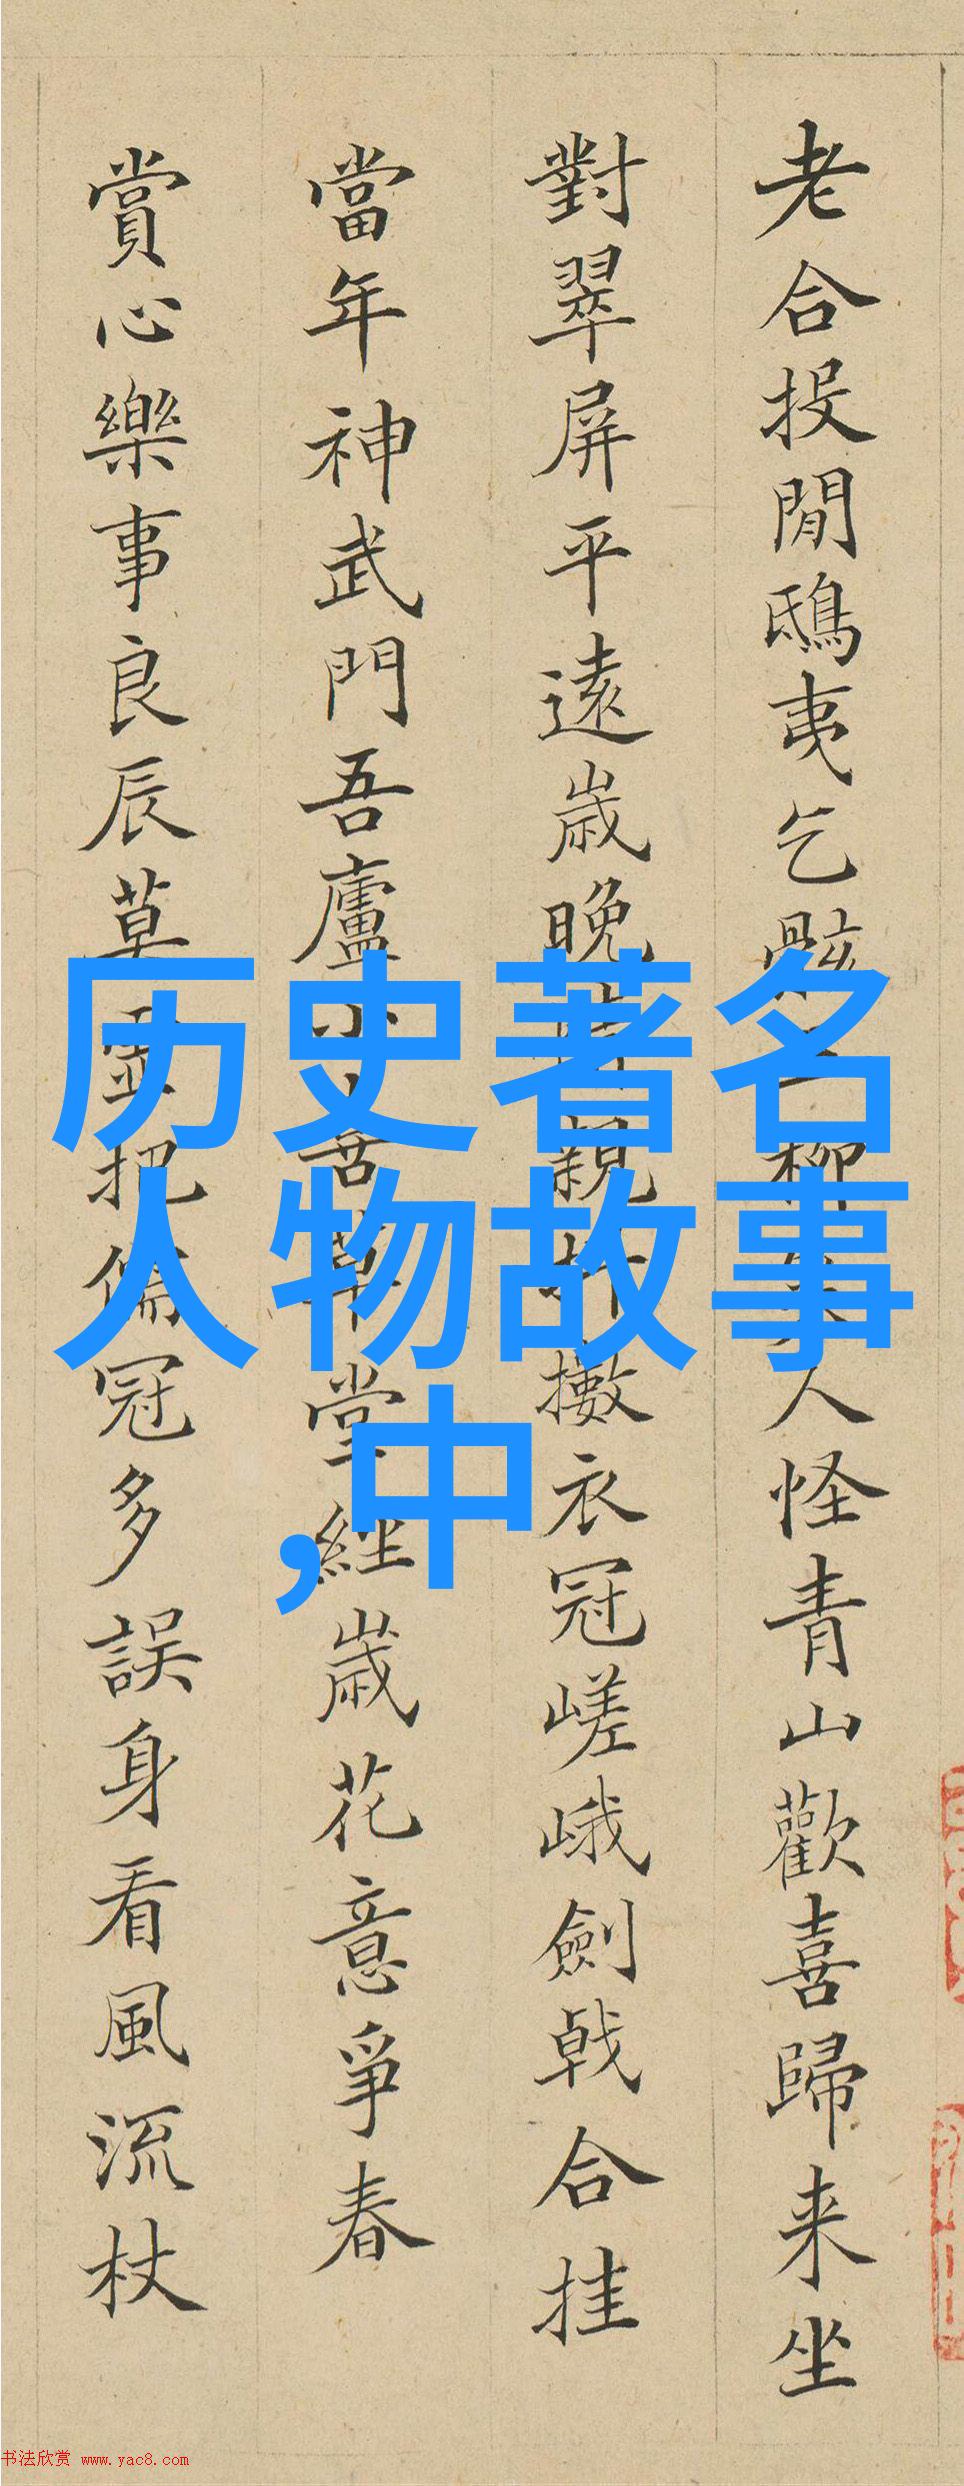 老合投閒鴟夷乞骸柳人怪青山歡喜歸来坐
對翠屏平遠歲晚親抖擻衣冠嵯峨劍戟合挂
當年神武門吾廬小草堂經歲花意爭春
賞心樂事良辰莫靈把儒冠多誤身看風流杖
历史著名
人物故事
,中
书法欣赏 www.yac8.com